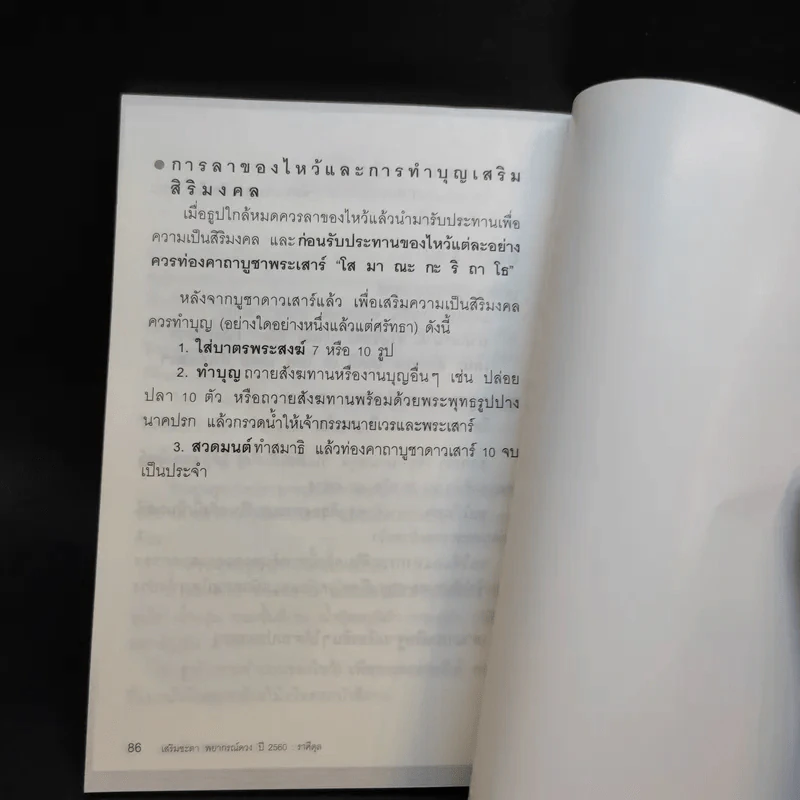 ● การลาของไหว้และการทำบุญเสริม
สิริมงคล
เมื่อธูปใกล้หมดควรลาของไหว้แล้วนำมารับประทานเพื่อ
ความเป็นสิริมงคล และก่อนรับประทานของไหว้แต่ละอย่าง
ควรท่องคาถาบูชาพระเสาร์ "โส มา ณะ กะ ริ ถา โธ"
หลังจากบูชาดาวเสาร์แล้ว เพื่อเสริมความเป็นสิริมงคล
ควรทำบุญ (อย่างใดอย่างหนึ่งแล้วแต่ศรัทธา) ดังนี้
1. ใส่บาตรพระสงฆ์ 7 หรือ 10 รูป
2. ทำบุญถวายสังฆทานหรืองานบุญอื่นๆ เช่น ปล่อย
ปลา 10 ตัว หรือถวายสังฆทานพร้อมด้วยพระพุทธรูปปาง
นาคปรก แล้วกรวดน้ำให้เจ้ากรรมนายเวรและพระเสาร์
3. สวดมนต์ทำสมาธิ แล้วท่องคาถาบูชาดาวเสาร์ 10 จบ
เป็นประจำ
86 เสริมชะตา พยากรณ์ดวง ปี 2560 ราศีตุล